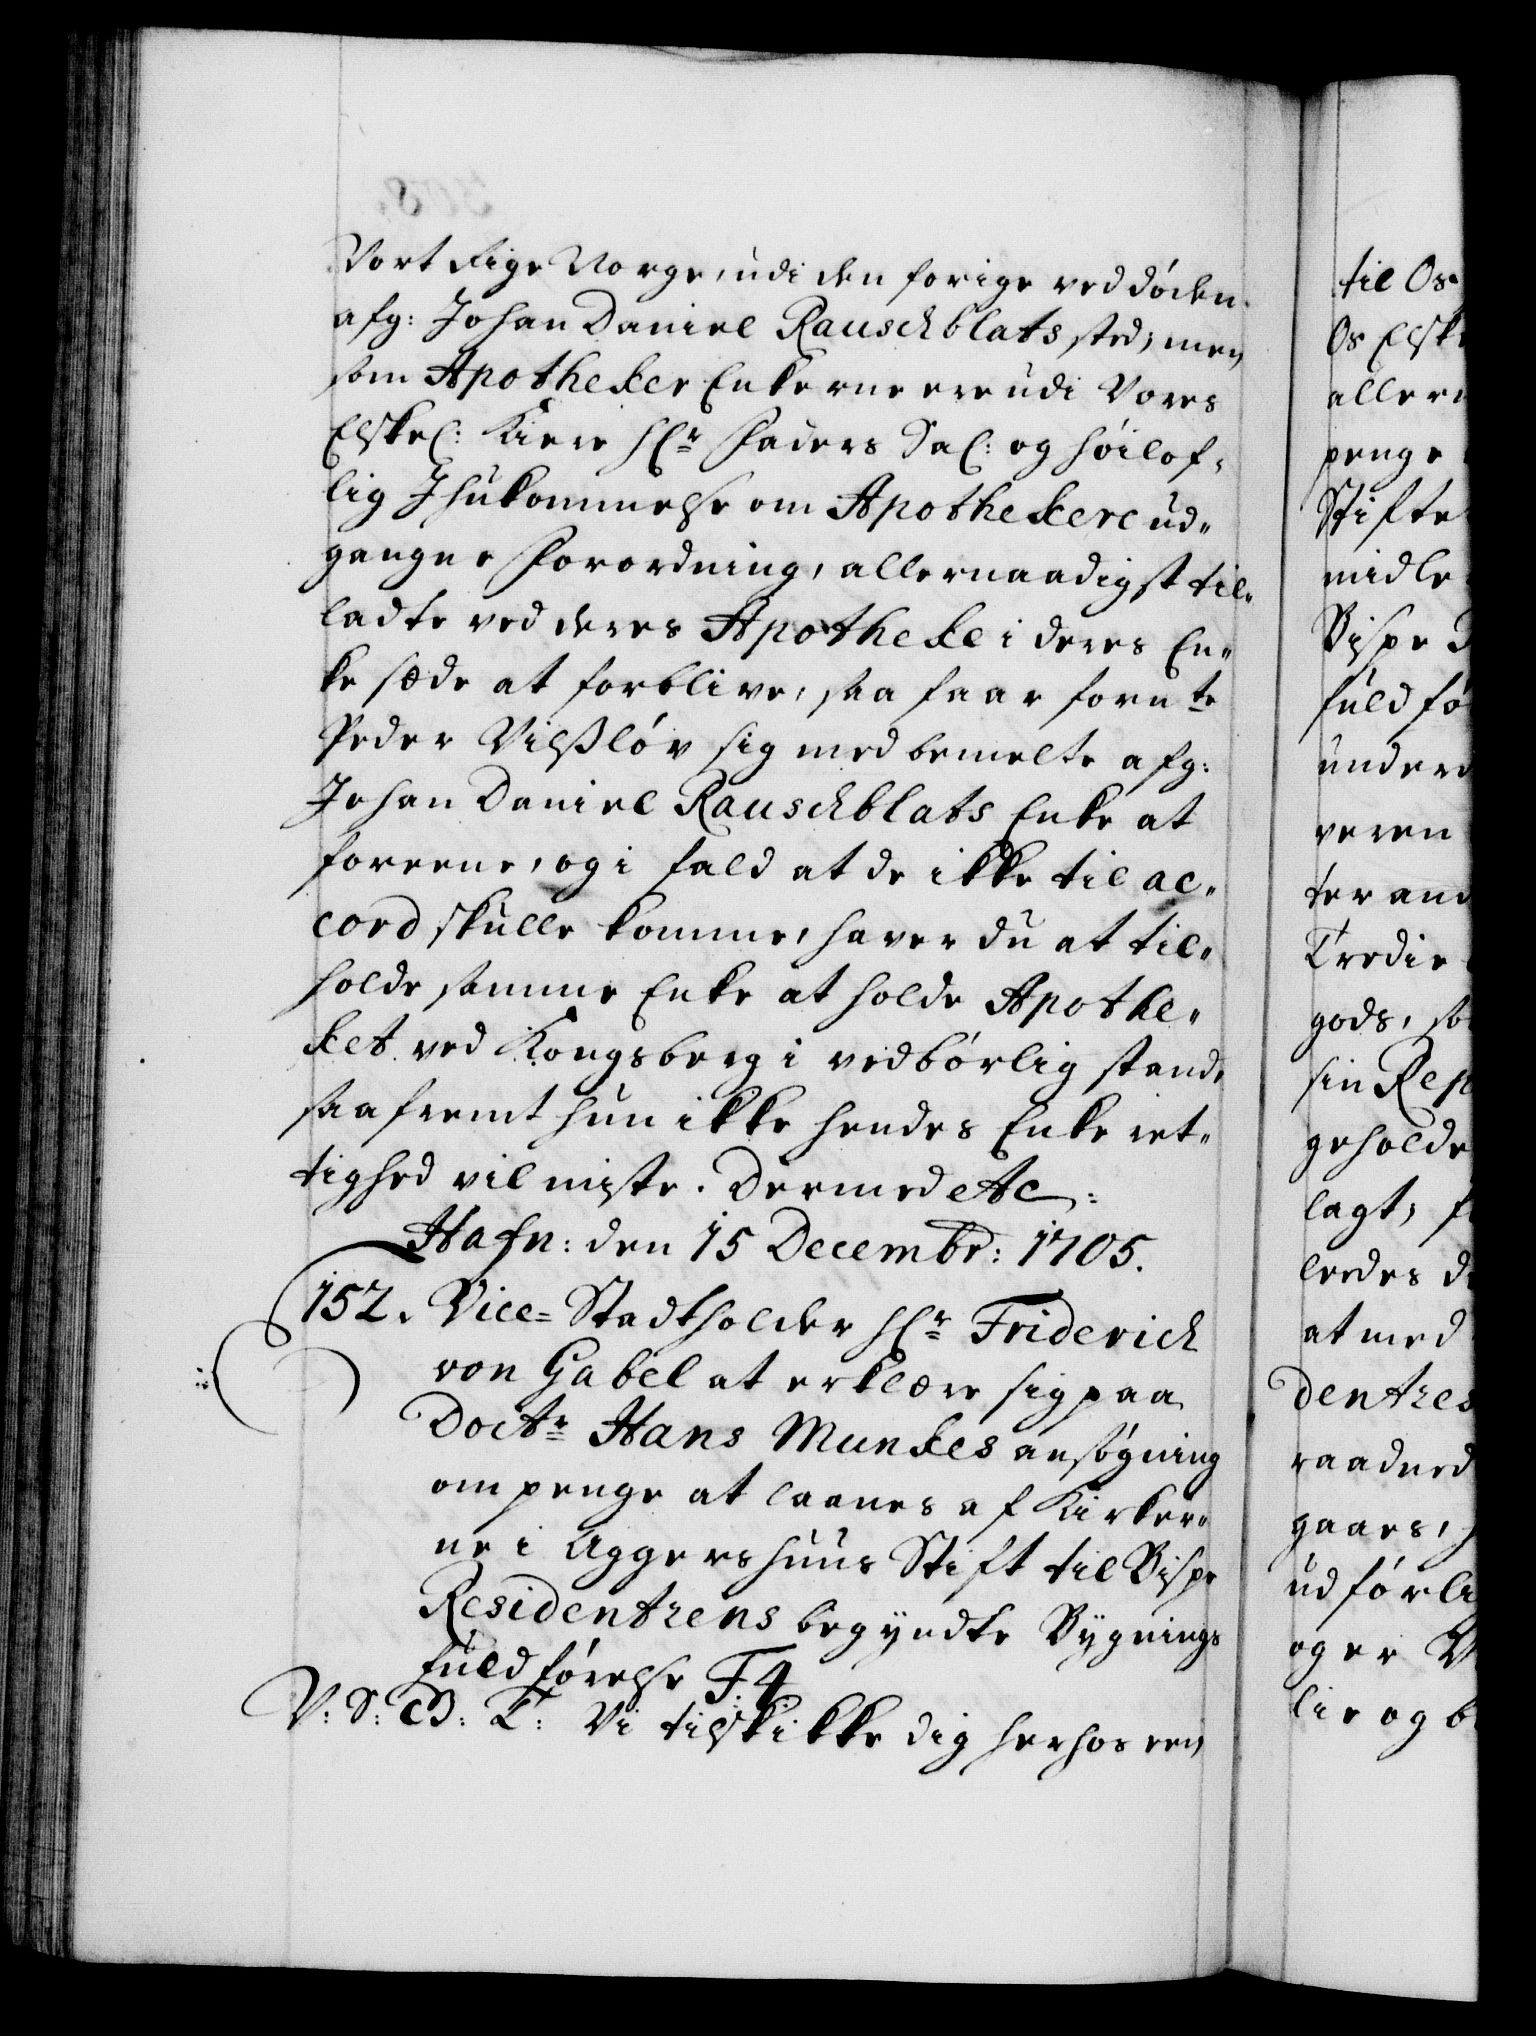 Vort Rige Norge, udi den forige ved döden
afg: Johan Daniel Rauschblats sted; men
som Apotheker Enkerne ere udi Vores
Elskel: Kiere Hr Faders Sal: og höilof-
lig Ihukommelse om Apothekere ud-
gangne Forordning, allernaadigst til-
ladte ved deres Apotheke i deres En-
ke sæde at forblive, saa faar fornte
Peder Vilßlöv sig med bemelte afg:
Johan Daniel Rauschblats Enke at
foreene, og i fald at de ikke til ac-
cord skulle komme, haver du at til-
holde samme Enke at holde Apothe-
ket ved Kongsberg i vedbörlig stand,
saafremt hun ikke hendes Enke ret-
tighed vil miste. Dermed etc:
Hafn: den 15 Decembr: 1705.
152. Vice-Stadtholder Hr Friderich
von Gabel at erklære sig paa
Doctr Hans Munkes ansögning
om penge at laanes af Kirker-
ne i Aggershuus Stift til Bispe
Residentzens begyndte Bygnings
fuldförelse F. 4
V: S: G: T: Vi tilskikke dig herhos een
til Os
Os Elsk
allern
penge
Stifte
midle
Bispe
fuldfö
under
veren
ter and
Tredie
gods, so
sin Rep
geholde
lagt, f
ledes d
at med
dentzes
raadned
gaaes,
udförli
og er V
lie og b